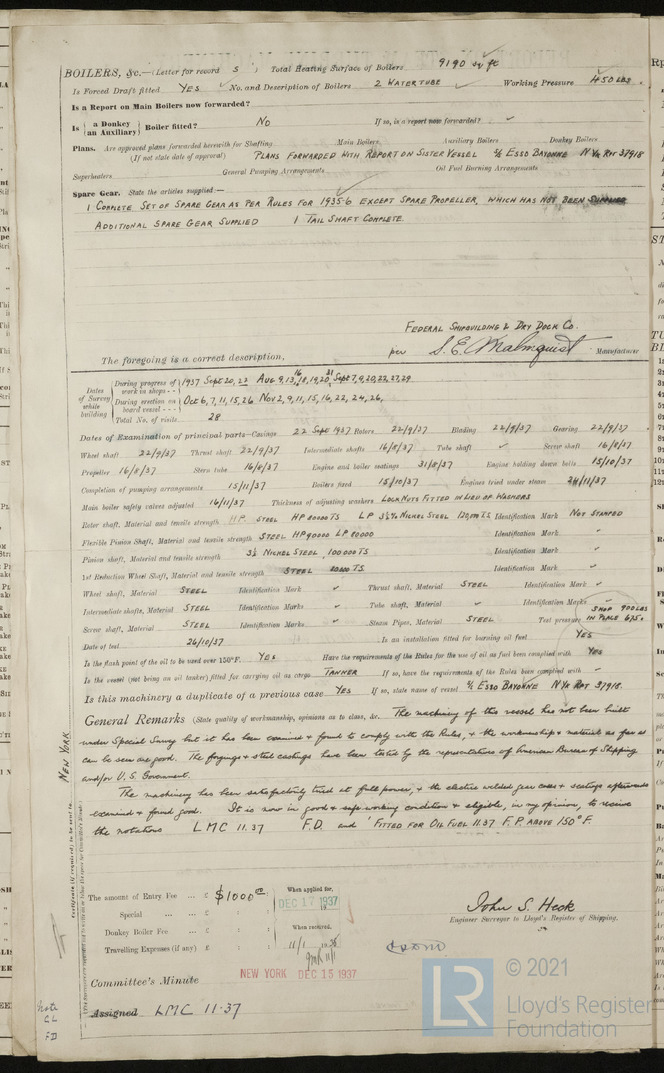 BOILERS, &c.—(Letter for record S ) Total Heating Surface of Boilers 9190 sq ft
Is Forced Draft fitted YES No. and Description of Boilers 2 WATERTUBE Working Pressure 450 LBS.
Is a Report on Main Boilers now forwarded?
Is {a Donkey / an Auxiliary} Boiler fitted? No If so, is a report now forwarded?
Plans. Are approved plans forwarded herewith for Shafting Main Boilers Auxiliary Boilers Donkey Boilers
(If not state date of approval) PLANS FORWARDED WITH REPORT ON SISTER VESSEL S/S ESSO BAYONNE N.Yk RPT 37918
Superheaters General Pumping Arrangements Oil Fuel Burning Arrangements
Spare Gear. State the articles supplied:—
1 COMPLETE SET OF SPARE GEAR AS PER RULES FOR 1935-6 EXCEPT SPARE PROPELLER, WHICH HAS NOT BEEN SUPPLIED
ADDITIONAL SPARE GEAR SUPPLIED 1 TAIL SHAFT COMPLETE.
FEDERAL SHIPBUILDING & DRY DOCK CO.
The foregoing is a correct description, per S. E. Malmquist Manufacturer
Dates of Survey while building
During progress of work in shops - - 1937 Sept 20, 22 Aug 9, 13, 16, 18, 19, 20, 31 Sept 7, 9, 20, 22, 27, 29
During erection on board vessel - - - Oct 6, 7, 11, 15, 26 Nov 2, 9, 11, 15, 16, 22, 24, 26,
Total No. of visits 28
Dates of Examination of principal parts—Casings 22 Sept 1937 Rotors 22/9/37 Blading 22/9/37 Gearing 22/9/37
Wheel shaft 22/9/37 Thrust shaft 22/9/37 Intermediate shafts 16/8/37 Tube shaft Screw shaft 16/8/37
Propeller 16/8/37 Stern tube 16/8/37 Engine and boiler seatings 31/8/37 Engine holding down bolts 15/10/37
Completion of pumping arrangements 15/11/37 Boilers fixed 15/10/37 Engines tried under steam 24/11/37
Main boiler safety valves adjusted 16/11/37 Thickness of adjusting washers LOCKNUTS FITTED IN LIEU OF WASHERS
Rotor shaft, Material and tensile strength H.P. STEEL HP 80000 TS LP 3½% NICKEL STEEL 120,000 TS Identification Mark NOT STAMPED
Flexible Pinion Shaft, Material and tensile strength STEEL HP 90000 LP 80000 Identification Mark
Pinion shaft, Material and tensile strength 3½ NICKEL STEEL, 100000 TS Identification Mark
1st Reduction Wheel Shaft, Material and tensile strength STEEL 80000 TS. Identification Mark
Wheel shaft, Material STEEL Identification Mark Thrust shaft, Material STEEL Identification Mark
Intermediate shafts, Material STEEL Identification Marks Tube shaft, Material Identification Marks
Screw shaft, Material STEEL Identification Marks Steam Pipes, Material STEEL Test pressure SHOP 900 LBS IN PLACE 675
Date of test 26/10/37 Is an installation fitted for burning oil fuel YES
Is the flash point of the oil to be used over 150°F. YES Have the requirements of the Rules for the use of oil as fuel been complied with YES
Is the vessel (not being an oil tanker) fitted for carrying oil as cargo TANKER If so, have the requirements of the Rules been complied with
Is this machinery a duplicate of a previous case YES If so, state name of vessel S/S ESSO BAYONNE N.Yk RPT 37918.
General Remarks (State quality of workmanship, opinions as to class, &c. The machinery of this vessel has not been built
under Special Survey but it has been examined & found to comply with the Rules, & the workmanship & materials as far as
can be seen are good. The forgings & steel castings have been tested by the representatives of American Bureau of Shipping
and/or U.S. Government.
The machinery has been satisfactorily tried at full power, & the electric welded gear cases & seatings afterwards
examined & found good. It is now in good & safe working condition & eligible, in my opinion, to receive
the notations LMC 11.37 F.D. and 'FITTED FOR OIL FUEL 11.37 F.P. ABOVE 150° F.
NEW YORK
The amount of Entry Fee ... £ $100000 : When applied for,
Special ... ... £ : DEC 17 1937
Donkey Boiler Fee ... £ : When received,
Travelling Expenses (if any) £ : 11/1 1938
John S. Heck
Engineer Surveyor to Lloyd's Register of Shipping.
NEW YORK DEC 15 1937
Committee's Minute
Assigned LMC 11.37
Note
F.D
© 2021
LR
Lloyd's Register
Foundation